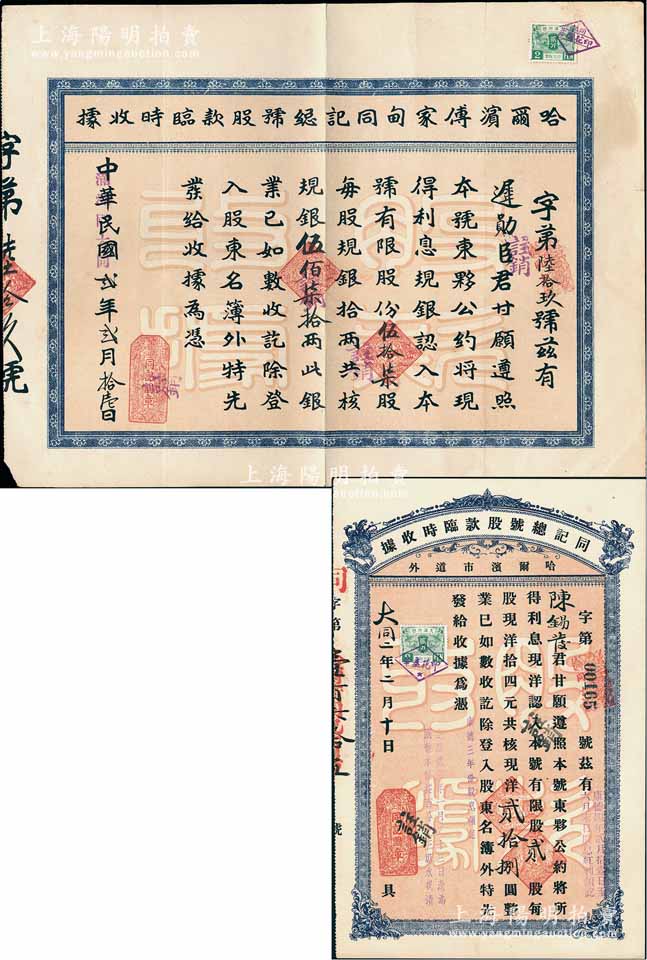 上海陽明拍賣
www.yangmingauction.com
哈爾濱傅家甸同記總號股款臨時收據
字第陸拾玖號茲有
遲勛臣君甘願遵照
本號東夥公約將現
得利息現銀認入本
號有限股份伍拾柒股
每股規銀拾兩共核
規銀伍佰柒拾兩此銀
業已如數收訖除登
入股東名簿外特先
發給收據為憑
中華民國弍年弍月拾壹日
註銷
2
字第陸拾玖號
上海陽明拍賣
同記總號股款臨時收據
哈爾濱市道外
字第 00105 號茲有
陳錫
君甘願遵照本號東夥公約將所
得利息現洋認入本號有限股貳股每
股現洋拾四元共核現洋貳拾捌圓整
業已如數收訖除登入股東名簿外特先
發給收據爲憑
大同二年二月十日
具
同
字第
號
上海陽明拍賣
www.yangmingauction.com